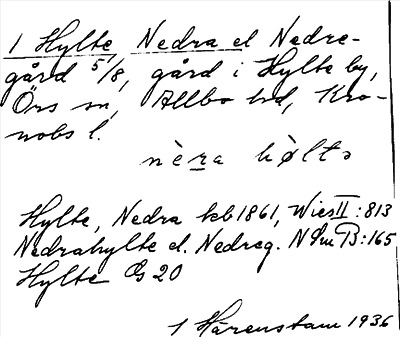 1 Hylte, Nedra el Nedre-
gård 5/8, gård i Hylte by,
Örs sn, Allbo hd, Kro-
nobs l.
nèra hølta
Hylte, Nedra kb 1861, Wies II:813
Nedrahylte el. Nedreg. NSm B:165
Hylte GS 20
1 Harenstam 1936